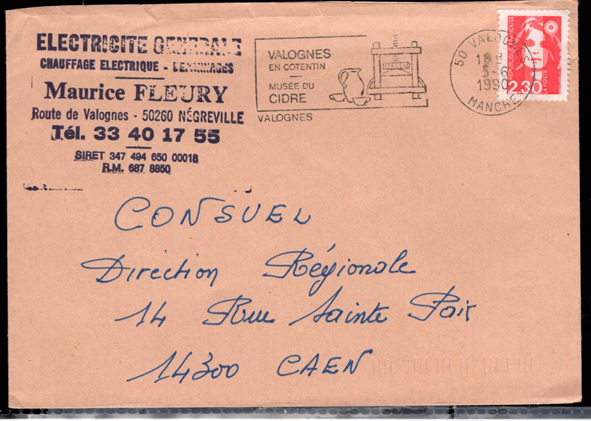 ELECTRICITE GENERALE
CHAUFFAGE ELECTRIQUE - DEPANNAGES
Maurice FLEURY
Route de Valognes - 50260 NÉGREVILLE
Tél. 33 40 17 55
SIRET 347 494 650 00018
R.M. 687 8850
VALOGNES
EN COTENTIN
MUSEE DU
CIDRE
VALOGNES
50 VALOGNES
5-6
1990
MANCHE
2.30
CONSUEL
Direction Régionale
14 Rue Sainte Paix
14300 CAEN